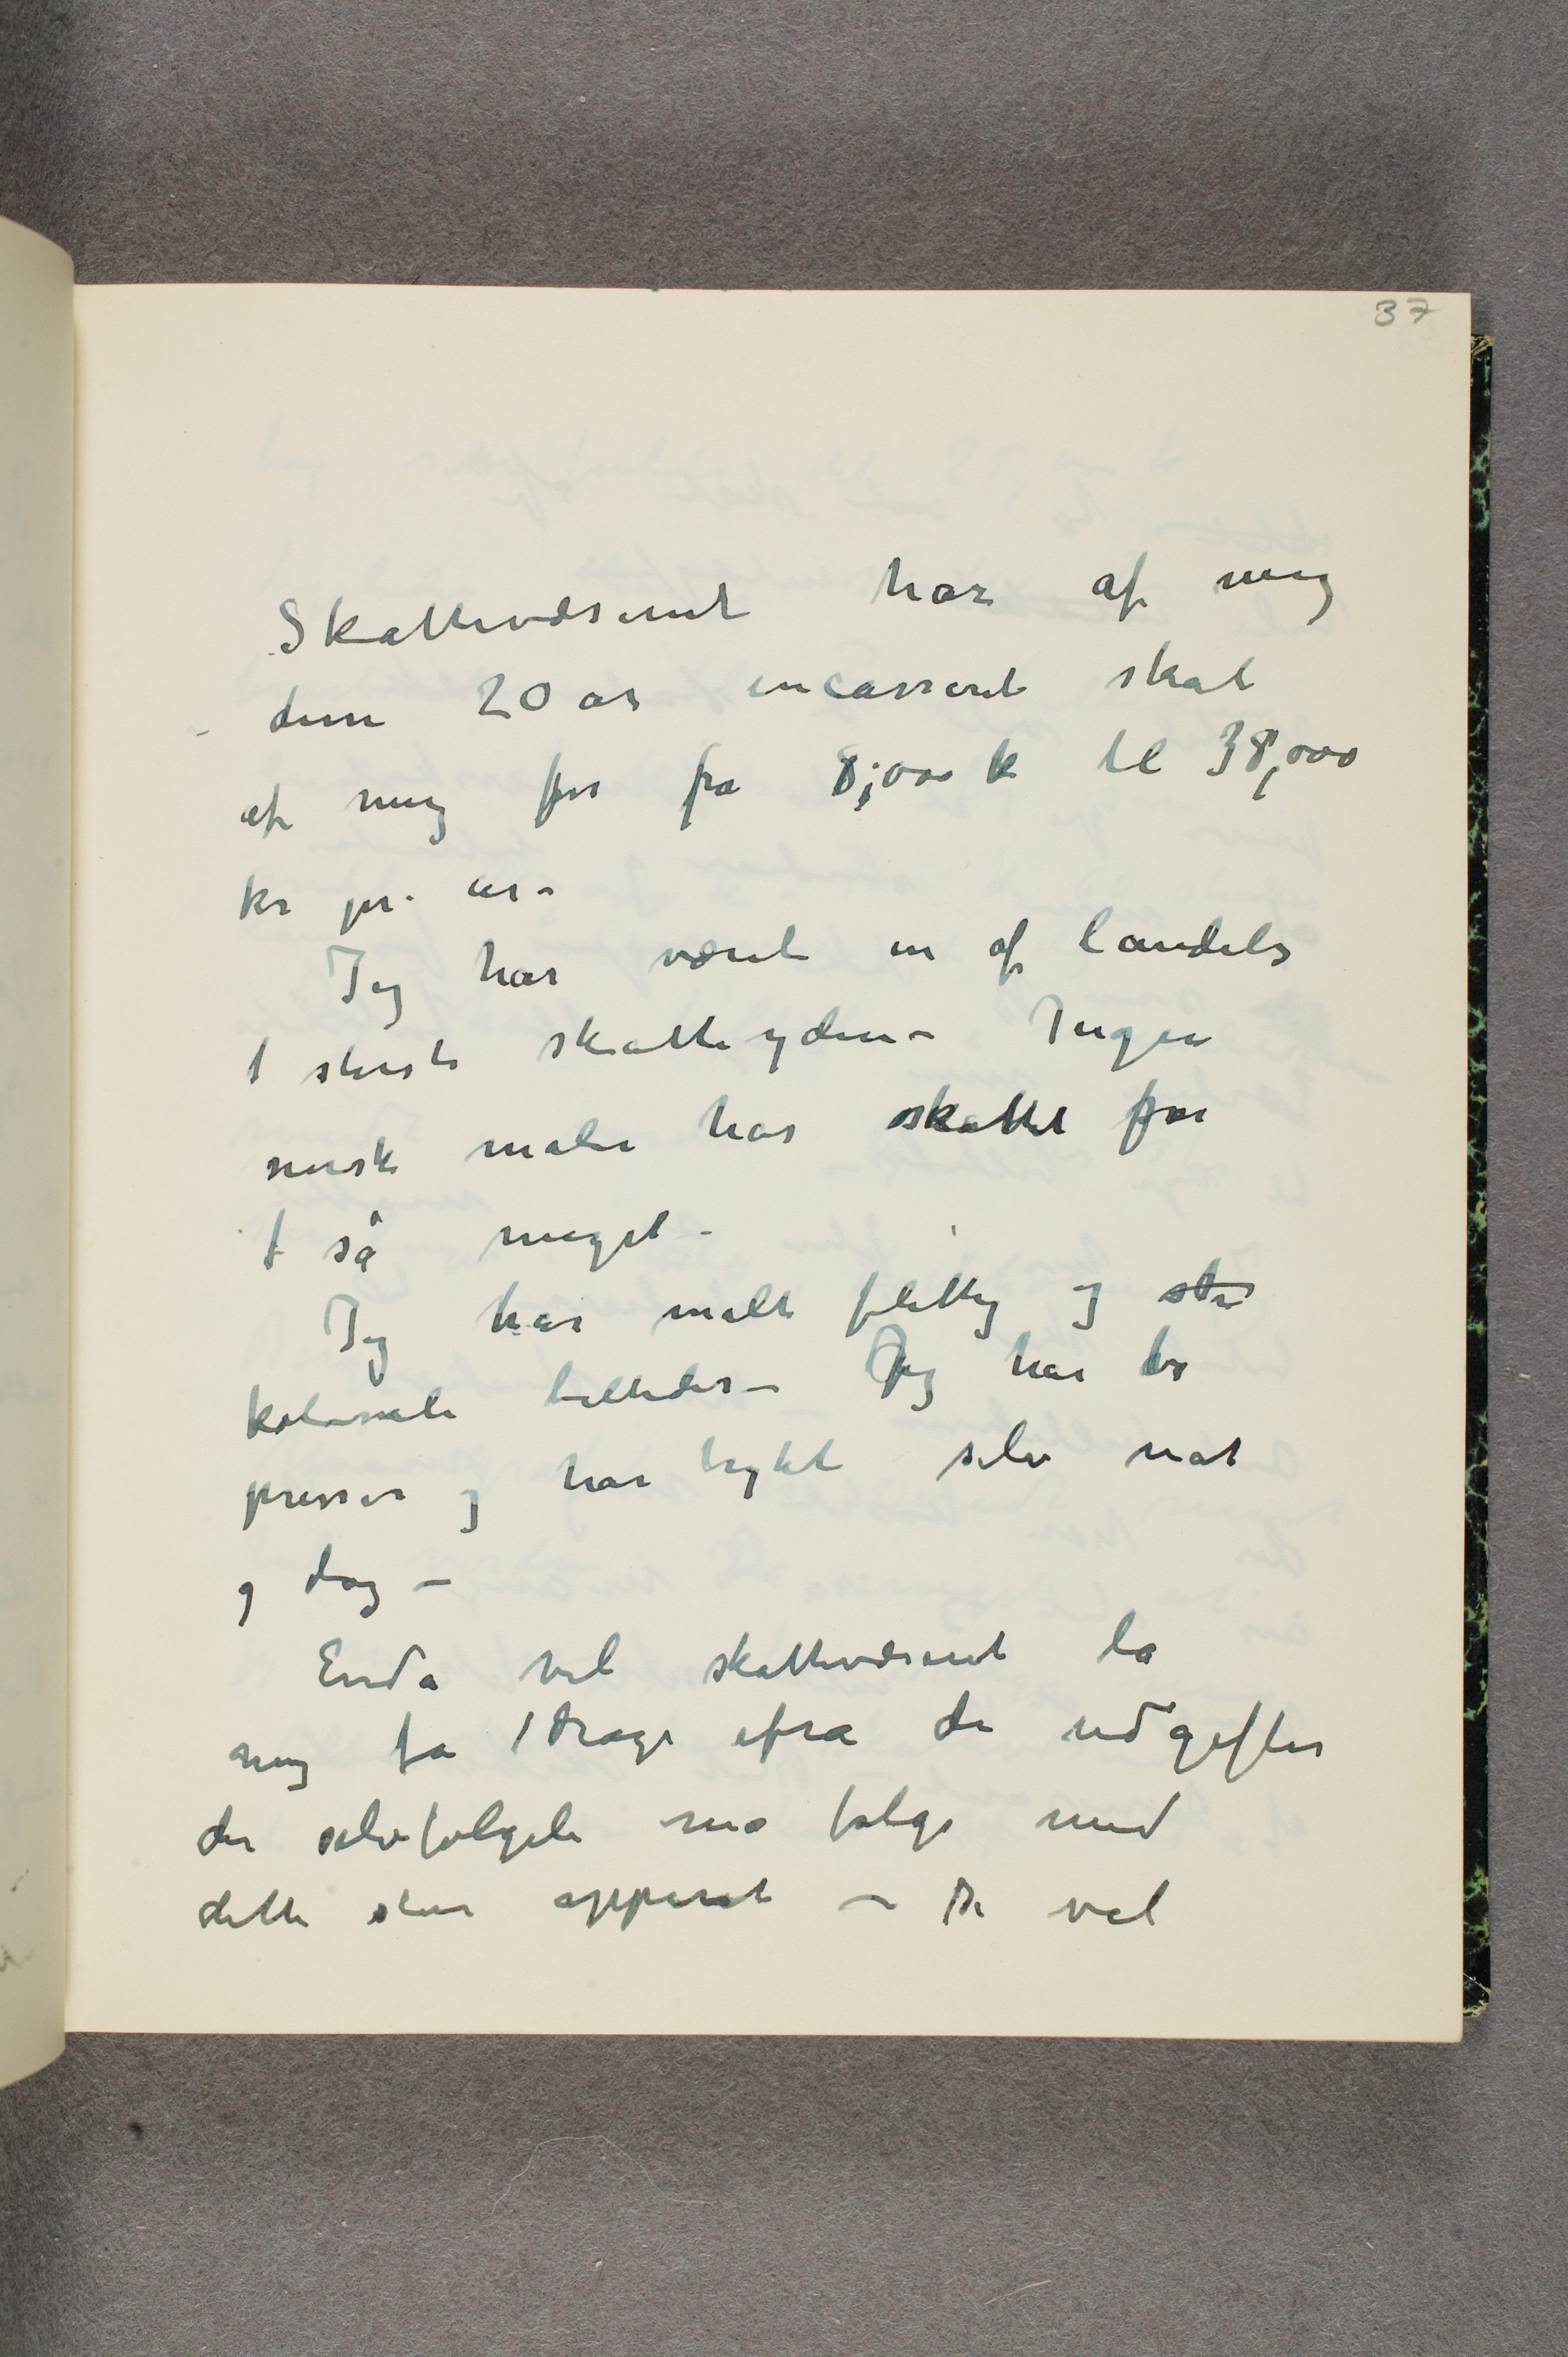 37
Skattevæsenet har af mig
disse 20 år incasseret skat
af mig for fra 8,000 k til 38,000
kr pr. år –
Jeg har været en af landets
største skatteydere – Ingen
norsk maler har skattet for
så meget –
Jeg har malt flittig og
kolosale billeder – Jeg har
presser og har trykt selv nat
og dag –
Enda vil skattevæsenet la
mig få fradrage ifra de udgifter
der selvfølgeli må følge med
dette store apparat – De vil